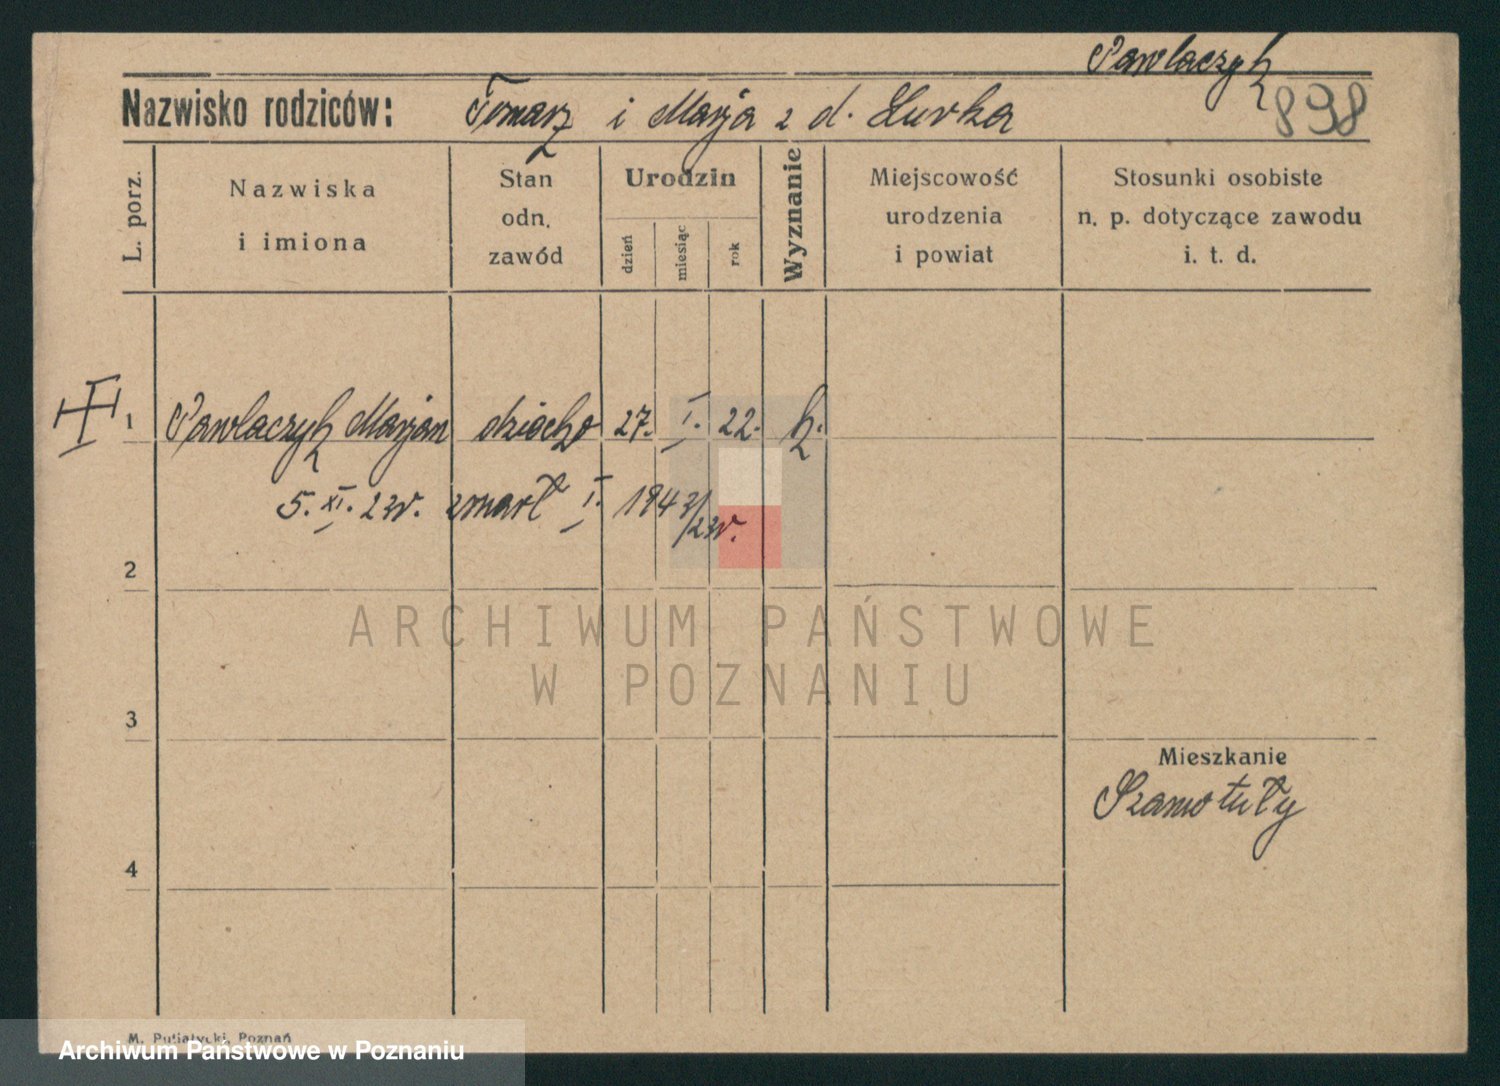 Pawlaczyk
Nazwisko rodziców: Tomasz i Marja z d. Hurka
898
L. porz.
Nazwiska
i imiona
Stan
odn.
zawód
Urodzin
dzień
miesiąc
rok
Wyznanie
Miejscowość
urodzenia
i powiat
Stosunki osobiste
n. p. dotyczące zawodu
i. t. d.
1 Pawlaczyk Marjan dziecko 27. I. 22. k.
5. XI. 23r. zmarł I. 194 3/23r.
2
ARCHIWUM PAŃSTWOWE
W POZNANIU
3
Mieszkanie
Szamotuły
4
M. Putiatycki, Poznań
Archiwum Państwowe w Poznaniu